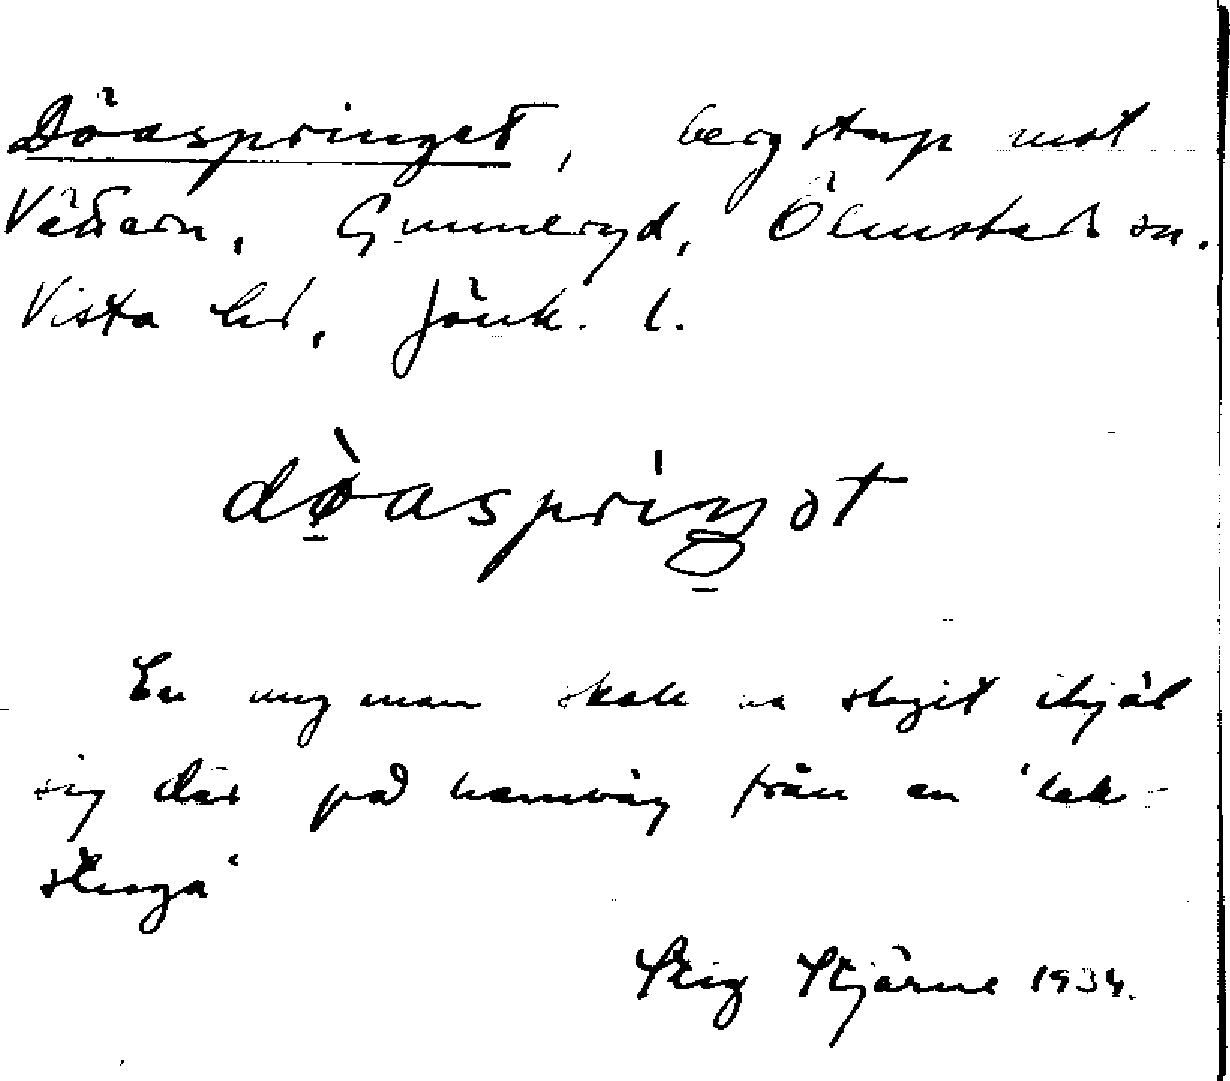 Döaspringet, bergstup mot
Vättern, Gunneryd, Ölmstads sn.
Vista hd, Jönk. l.
dø̀aspriŋət
En ung man skall ha slagit ihjäl
sig där på hemväg från en 'lek-
stuga'
Stig Stjärne 1934.